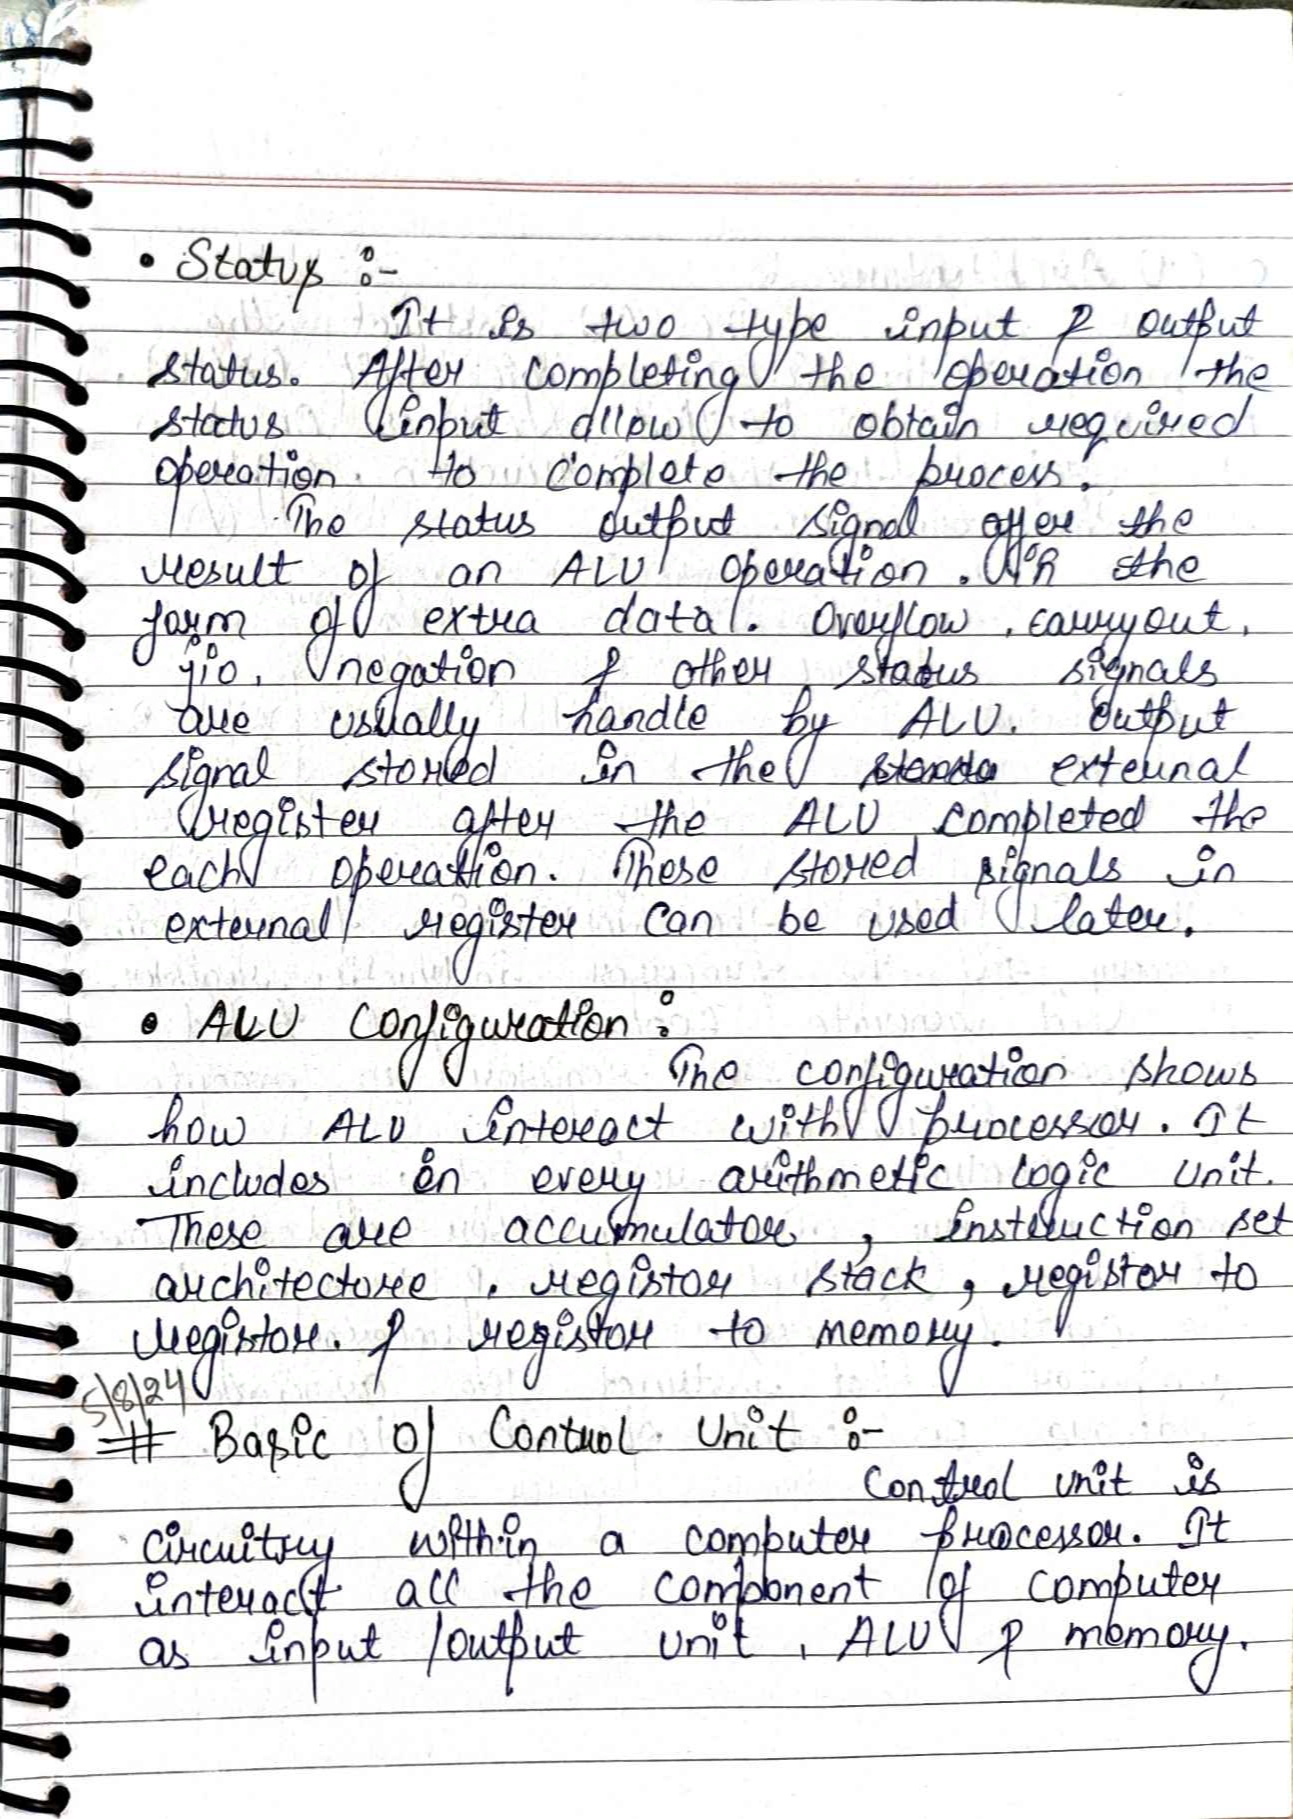 • Status :-
It is two type input & output
status. After completing the operation the
status input allow to obtain required
operation to complete the process.
The status output signal offer the
result of an ALU operation. In the
form of extra data. Overflow, carryout,
negation & other status signals
are usually handle by ALU. Output
signal stored in the external
register after the ALU completed the
each operation. These stored signals in
external register can be used later.
• ALU Configuration :
The configuration shows
how ALU interact with processor. It
includes in every arithmetic logic unit.
These are accumulator, instruction set
architectore, registor stack, registor to
registor. & registor to memory.
5/8/24
# Basic of Control Unit :-
Control unit is
circuitry within a computer processor. It
interact all the component of computer
as input /output unit, ALU & memory.